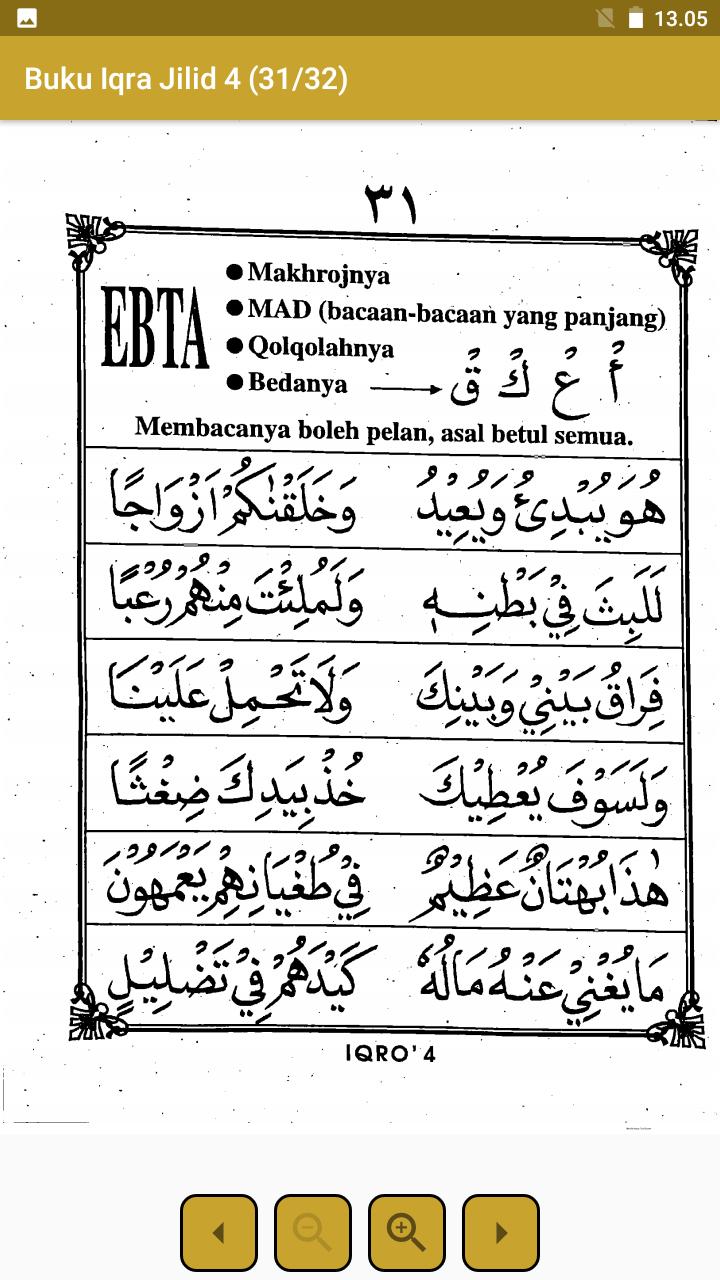 13.05
Buku Iqra Jilid 4 (31/32)
٣١
EBTA
● Makhrojnya
● MAD (bacaan-bacaan yang panjang)
● Qolqolahnya
● Bedanya → أُ عُ كُ قُ
Membacanya boleh pelan, asal betul semua.
هُوَ يُبْدِئُ وَيُعِيْدُ وَخَلَقْنٰكُمْ اَزْوَاجًا
لَلَبِثَ فِيْ بَطْنِهٖ وَلَمُلِئْتَ مِنْهُمْ رُعْبًا
فِرَاقُ بَيْنِيْ وَبَيْنِكَ وَلَا تَحْمِلْ عَلَيْنَا
وَلَسَوْفَ يُعْطِيْكَ خُذْ بِيَدِكَ ضِغْثًا
هٰذَا بُهْتَانٌ عَظِيْمٌ فِيْ طُغْيَانِهِمْ يَعْمَهُوْنَ
مَا يُغْنِيْ عَنْهُ مَالُهُ كَيْدَهُمْ فِيْ تَضْلِيْلٍ
IQRO' 4